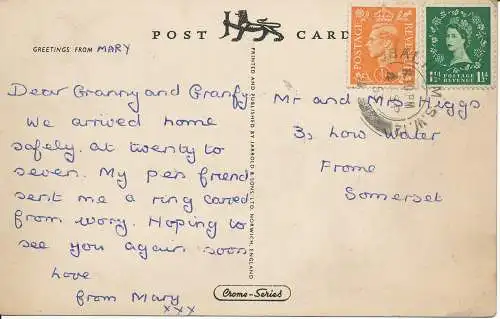 POST CARD
GREETINGS FROM MARY
Dear Granny and Granfy
We arrived home
safely, at twenty to
seven. My pen friend
sent me a ring caved
from ivory. Hoping to
see you again soon
love
from Mary
xxx
PRINTED AND PUBLISHED BY JARROLD & SONS LTD. NORWICH, ENGLAND
Crome-Series
Mr and Mrs Higgs
3, Low Water
Frome
Somerset
POSTAGE
REVENUE
1½ 1½
POSTAGE
REVENUE
BATH
PM